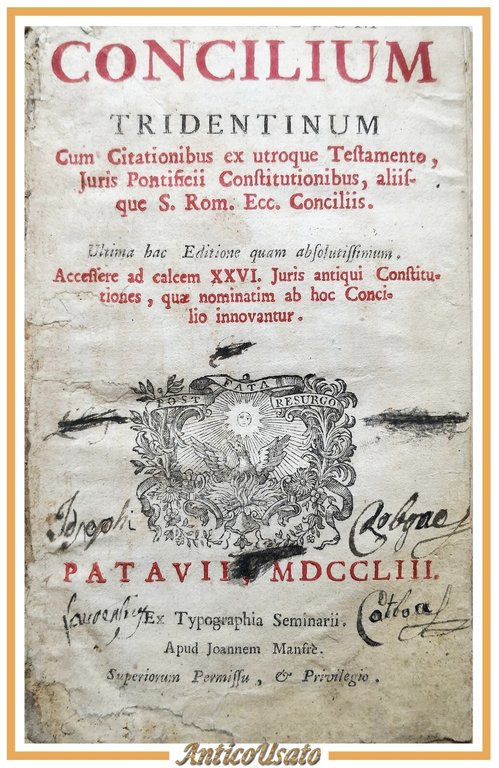 CONCILIUM
TRIDENTINUM
Cum Citationibus ex utroque Teſtamento,
Juris Pontificii Conſtitutionibus, aliiſ-
que S. Rom. Ecc. Conciliis.
Ultima hac Editione quam abſolutiſſimum.
Acceſſere ad calcem XXVI. Juris antiqui Conſtitu-
tiones, quæ nominatim ab hoc Conci-
lio innovantur.
POST FATA RESURGO
Joſephi
PATAVII, MDCCLIII.
Ex Typographia Seminarii.
Apud Joannem Manfrè.
Superiorum Permiſſu, & Privilegio.
AnticoUsato